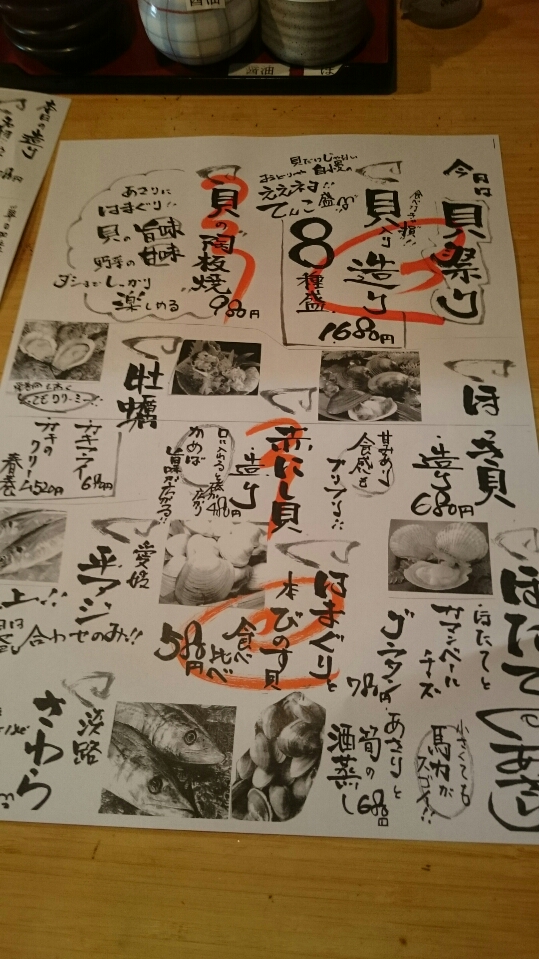 今日は
貝祭り
食べけりゃ損!!
貝入り
造り
8
種盛
1680円
貝だけじゃない
自慢の
ええネタ!!
てんこ盛!!
貝の陶板焼
980円
あさりに
はまぐり!!
貝の旨味
野菜の甘味
ダシにしっかり
楽しめる
ほっき貝
造り
680円
甘みあり
食感も
プリプリ!!
赤にし貝
造り
480円
口に入ると
かめば
旨味が広がる!!
牡蠣
カキフライ
680円
カキの
クリーム
春巻
450円
ほたて
ほたてと
サマンベールに
チーズ
グラタン
780円
はまぐりと
本びのす貝
食べ比べ
580円
愛媛
平アジ
合わせのみ!!
あさり
あさりと
筍の
酒蒸し
680円
淡路
さわら
春日の造り
醤油